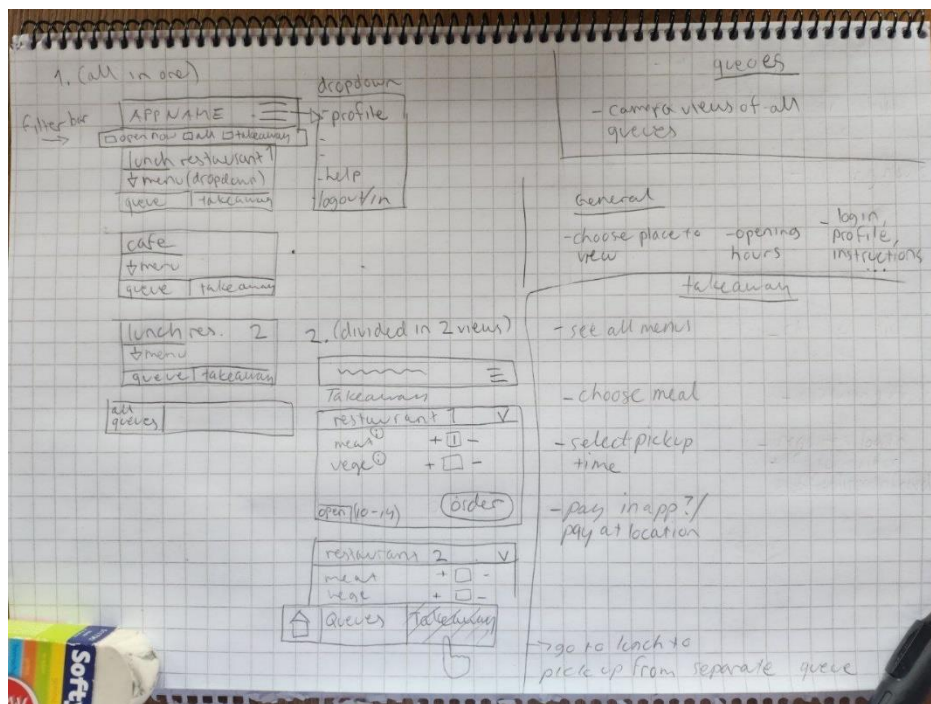 1. (all in one)
filter bar
APP NAME
open now all takeaway
lunch restaurant 1
menu (dropdown)
queue takeaway
cafe
menu
queue takeaway
lunch res. 2
menu
queue takeaway
all
queues
dropdown
- profile
-
-
- help
logout/in
2. (divided in 2 views)
Takeaway
restaurant 1 V
meat i + 1 -
vege i + -
open (10-14) order
restaurant 2 V
meat + -
vege + -
Queues takeaway
queues
- camera views of all
queues
General
- choose place to
view
- opening
hours
- login,
profile,
instructions
...
takeaway
- see all menus
- choose meal
- select pickup
time
- pay in app?/
pay at location
-> go to lunch to
pick up from separate queue
Soft